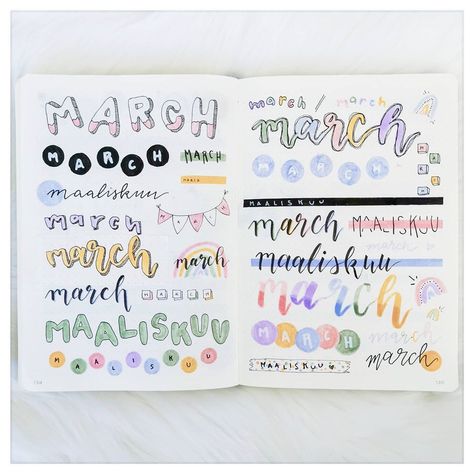 MARCH
MARCH
MARCH
MARCH
maaliskuu
MARCH
march
march
march
march
MARCH
MAALISKUU
MAALISKUU
march / march
march
MARCH
MARCH
MAALISKUU
march
MAALISKUU
march
maaliskuu
march
MARCH
march
MAALISKUU
march